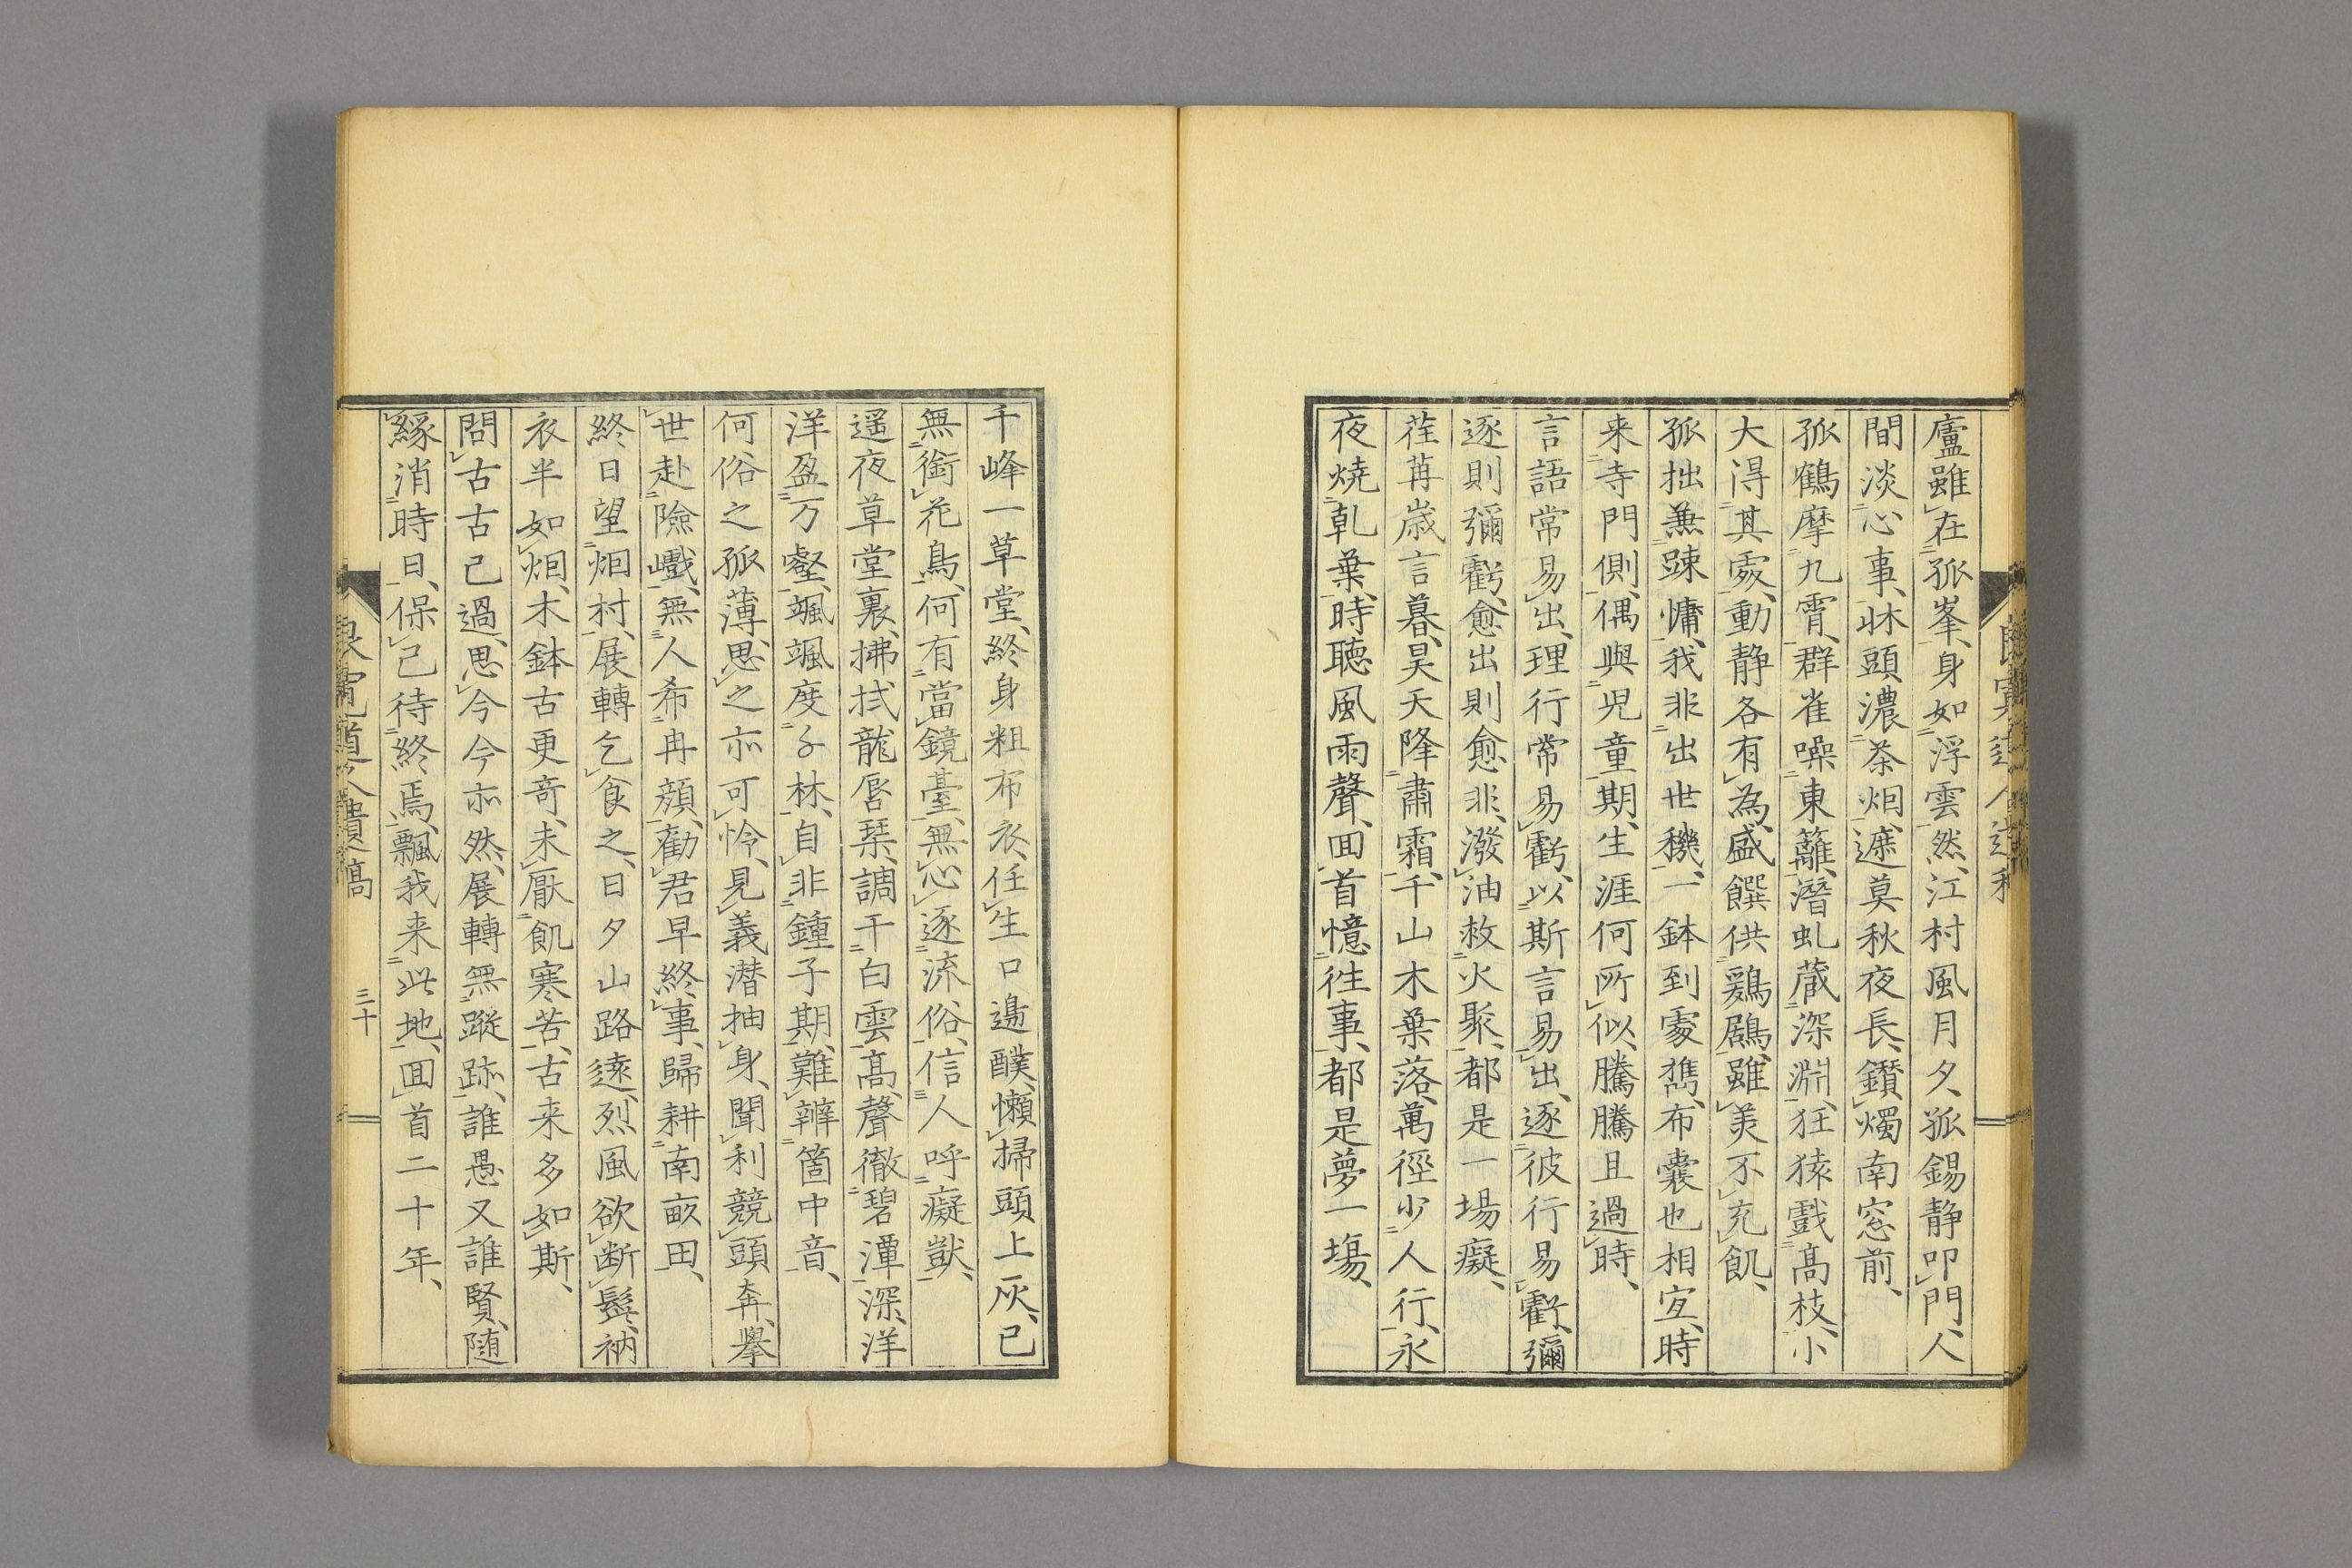 廬雖在孤峯、身如浮雲然、江村風月夕、孤錫静叩門、人
間淡心事、牀頭濃茶烟、遮莫秋夜長、鑽燭南窓前、
孤鶴摩九霄、群雀噪東籬、潛虬蔵深淵、狂猿戲髙枝、小
大得其處、動静各有為、盛饌供鶏鶋、雖美不充飢、
孤拙兼踈慵、我非出世機、一鉢到處携、布囊也相宜、時
来寺門側、偶與児童期、生涯何所似、騰騰且過時、
言語常易出、理行常易虧、以斯言易出、逐彼行易虧、彌
逐則彌虧、愈出則愈非、潑油救火聚、都是一場癡、
荏苒歳言暮、昊天降肅霜、千山木葉落、萬徑少人行、永
夜焼乹葉、時聴風雨聲、囬首憶徃事、都是夢一塲、
千峰一草堂、終身粗布衣、任生口邉醭、懶掃頭上灰、已
無銜花鳥、何有當鏡臺、無心逐流俗、信人呼癡獃、
遥夜草堂裏、拂拭龍唇琹、調干白雲髙、聲徹碧潭深、洋
洋盈万壑、颯颯度千林、自非鍾子期、難辨箇中音、
何俗之孤薄、思之亦可怜、見義潜抽身、聞利競頭奔、舉
世赴險巇、無人希冉顔、勸君早終事、歸耕南畝田、
終日望烟村、展轉乞食之、日夕山路遠、烈風欲断鬚、衲
衣半如烟、木鉢古更竒、未厭飢寒苦、古来多如斯、
問古古已過、思今今亦然、展轉無蹤跡、誰愚又誰賢、随
縁消時日、保己待終焉、飄我来此地、囬首二十年、
三十